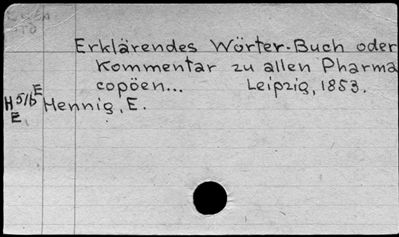 Erklärendes Wörter-Buch oder
Kommentar zu allen Pharma
copöen... Leipzig, 1853.
H516 E Hennig, E.
E.